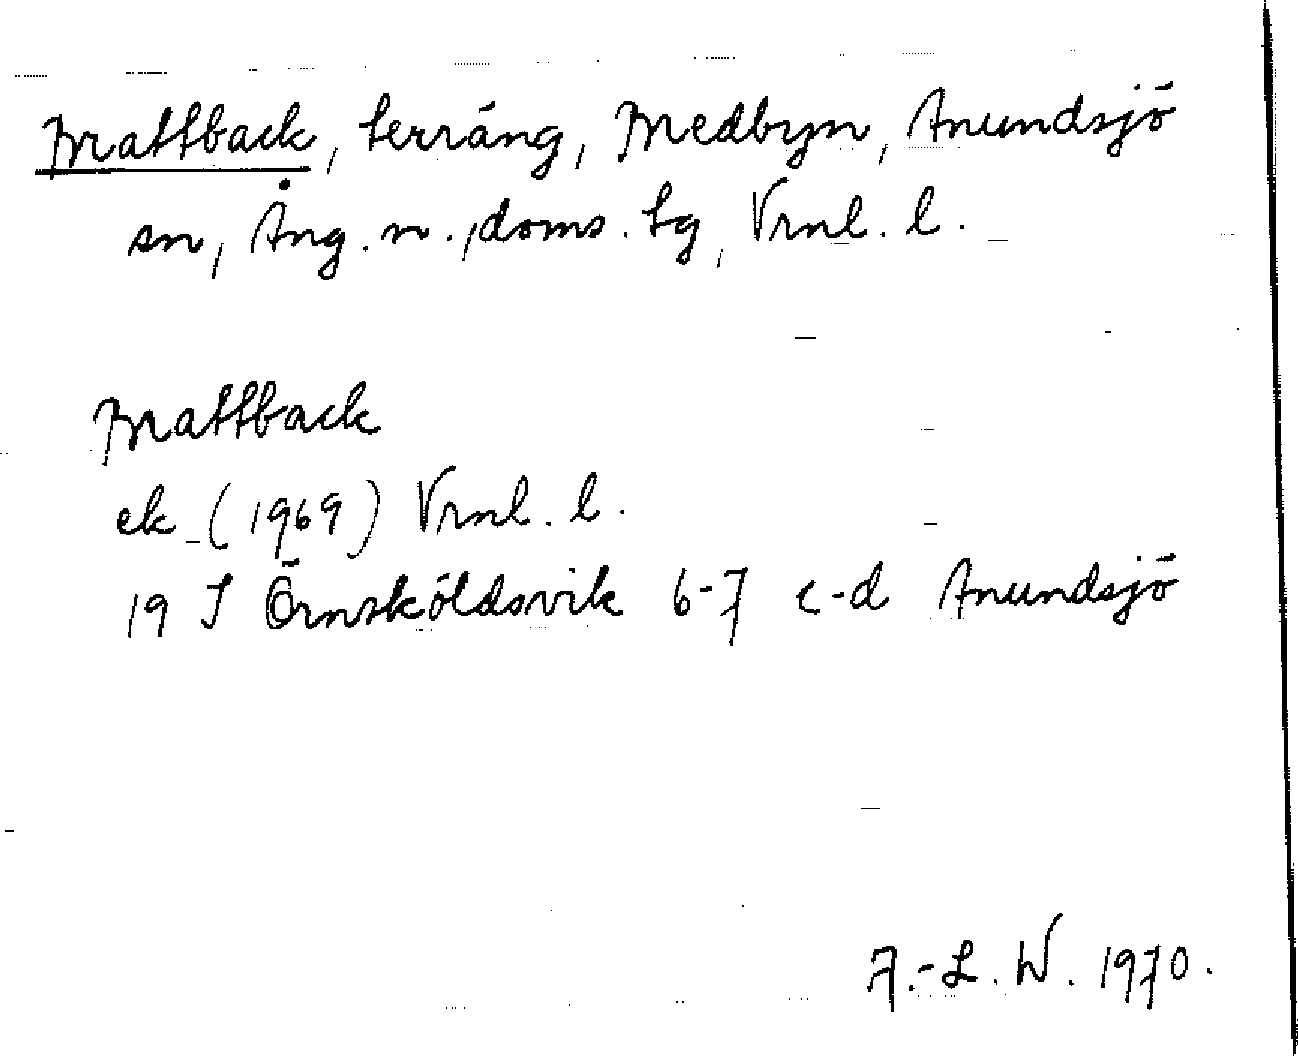 Mattback, terräng, Medbyn, Anundsjö
sn, Ång. n., doms. tg, Vrnl. l.
Mattback
ek (1969) Vrnl. l.
19 J Örnsköldsvik 6-7 c-d Anundsjö
A.-L. W. 1970.